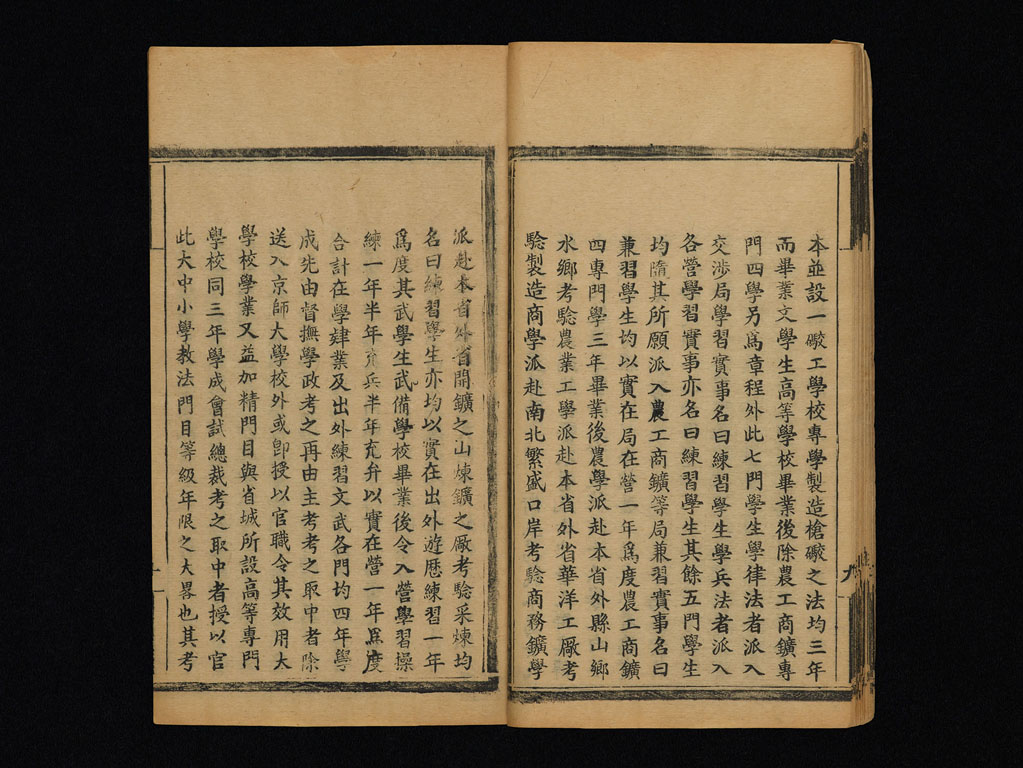 本並設一礮工學校專學製造槍礮之法均三年
而畢業文學生高等學校畢業後除農工商鑛專
門四學另爲章程外此七門學生學律法者派入
交涉局學習實事名曰練習學生學兵法者派入
各營學習實事亦名曰練習學生其餘五門學生
均隋其所願派入農工商鑛等局兼習實事名曰
兼習學生均以實在局在營一年爲度農工商鑛
四專門學三年畢業後農學派赴本省外縣山鄉
水鄉考騐農業工學派赴本省外省華洋工厰考
騐製造商學派赴南北繁盛口岸考騐商務鑛學
派赴本省外省開鑛之山煉鑛之厰考騐采煉均
名曰練習學生亦均以實在出外遊歷練習一年
爲度其武學生武備學校畢業後令入營學習操
練一年半年充兵半年充弁以實在營一年爲度
合計在學肄業及出外練習文武各門均四年學
成先由督撫學政考之再由主考考之取中者除
送入京師大學校外或卽授以官職令其效用大
學校學業又益加精門目與省城所設高等專門
學校同三年學成會試總裁考之取中者授以官
此大中小學敎法門目等級年限之大畧也其考
九